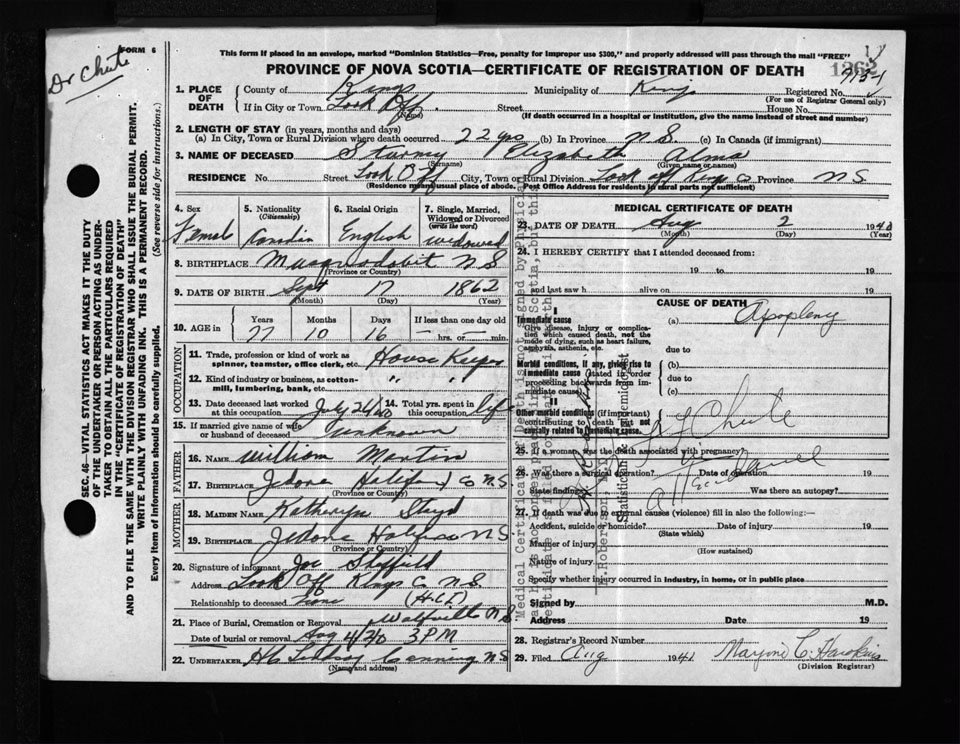 FORM 6
Dr Chute
This form if placed in an envelope, marked "Dominion Statistics—Free, penalty for improper use $300," and properly addressed will pass through the mail "FREE"
PROVINCE OF NOVA SCOTIA—CERTIFICATE OF REGISTRATION OF DEATH
1. PLACE OF DEATH
County of Kings Municipality of Kings Registered No.
(For use of Registrar General only)
If in City or Town Look Off (Name) Street House No.
(If death occurred in a hospital or institution, give the name instead of street and number)
2. LENGTH OF STAY (in years, months and days)
(a) In City, Town or Rural Division where death occurred 22 yrs (b) In Province N S (c) In Canada (if immigrant)
3. NAME OF DECEASED Elizabeth Alma
(Surname) (Given name or names)
RESIDENCE No. Street Look Off City, Town or Rural Division Look off Kings Co Province N S
(Residence means usual place of abode. Post Office Address for residents in rural parts not sufficient)
4. Sex Female
5. Nationality (Citizenship) Canadin
6. Racial Origin English
7. Single, Married, Widowed or Divorced (write the word) widowed
8. BIRTHPLACE Musquodobit N S
(Province or Country)
9. DATE OF BIRTH Sept 17 1862
(Month) (Day) (Year)
10. AGE in Years 77 Months 10 Days 16 If less than one day old hrs. or min.
OCCUPATION
11. Trade, profession or kind of work as spinner, teamster, office clerk, etc. House Keeper
12. Kind of industry or business, as cotton-mill, lumbering, bank, etc. " "
13. Date deceased last worked at this occupation July 24/40
14. Total yrs. spent in this occupation life
15. If married give name of wife or husband of deceased unknown
FATHER
16. NAME William Martin
17. BIRTHPLACE Jedore Halifax Co N S.
(Province or Country)
MOTHER
18. MAIDEN NAME Katheryn
19. BIRTHPLACE Jedore N S.
(Province or Country)
20. Signature of informant Joe Sheffield
Address Look Off Kings Co N S
Relationship to deceased
21. Place of Burial, Cremation or Removal Wolfville N S
Date of burial or removal Aug 4/40 3 PM
22. UNDERTAKER Canning N S
(Name and address)
MEDICAL CERTIFICATE OF DEATH
23. DATE OF DEATH Aug 2 1940
(Month) (Day) (Year)
24. I HEREBY CERTIFY that I attended deceased from:
19 to 19
and last saw h alive on 19
CAUSE OF DEATH
Immediate cause
Give disease, injury or complication which caused death, not the mode of dying, such as heart failure, asphyxia, asthenia, etc.
(a) Apoplexy
due to
Morbid conditions, if any, giving rise to immediate cause (stated in order proceeding backwards from immediate cause)
(b)
due to
(c)
Other morbid conditions (if important) contributing to death but not causally related to immediate cause.
Chute
25. If a woman, was the death associated with pregnancy?
26. Was there a surgical operation? Date of operation 19
State findings Was there an autopsy?
27. If death was due to external causes (violence) fill in also the following:—
Accident, suicide or homicide? Date of injury 19
(State which)
Manner of injury
(How sustained)
Nature of injury
Specify whether injury occurred in industry, in home, or in public place
Signed by M.D.
Address Date 19
28. Registrar's Record Number
29. Filed Aug 1941 Marjorie C. Hawkins
(Division Registrar)
SEC. 46—VITAL STATISTICS ACT MAKES IT THE DUTY OF THE UNDERTAKER OR PERSON ACTING AS UNDERTAKER TO OBTAIN ALL THE PARTICULARS REQUIRED IN THE "CERTIFICATE OF REGISTRATION OF DEATH" AND TO FILE THE SAME WITH THE DIVISION REGISTRAR WHO SHALL ISSUE THE BURIAL PERMIT.
WRITE PLAINLY WITH UNFADING INK. THIS IS A PERMANENT RECORD.
Every item of information should be carefully supplied. (See reverse side for instructions.)